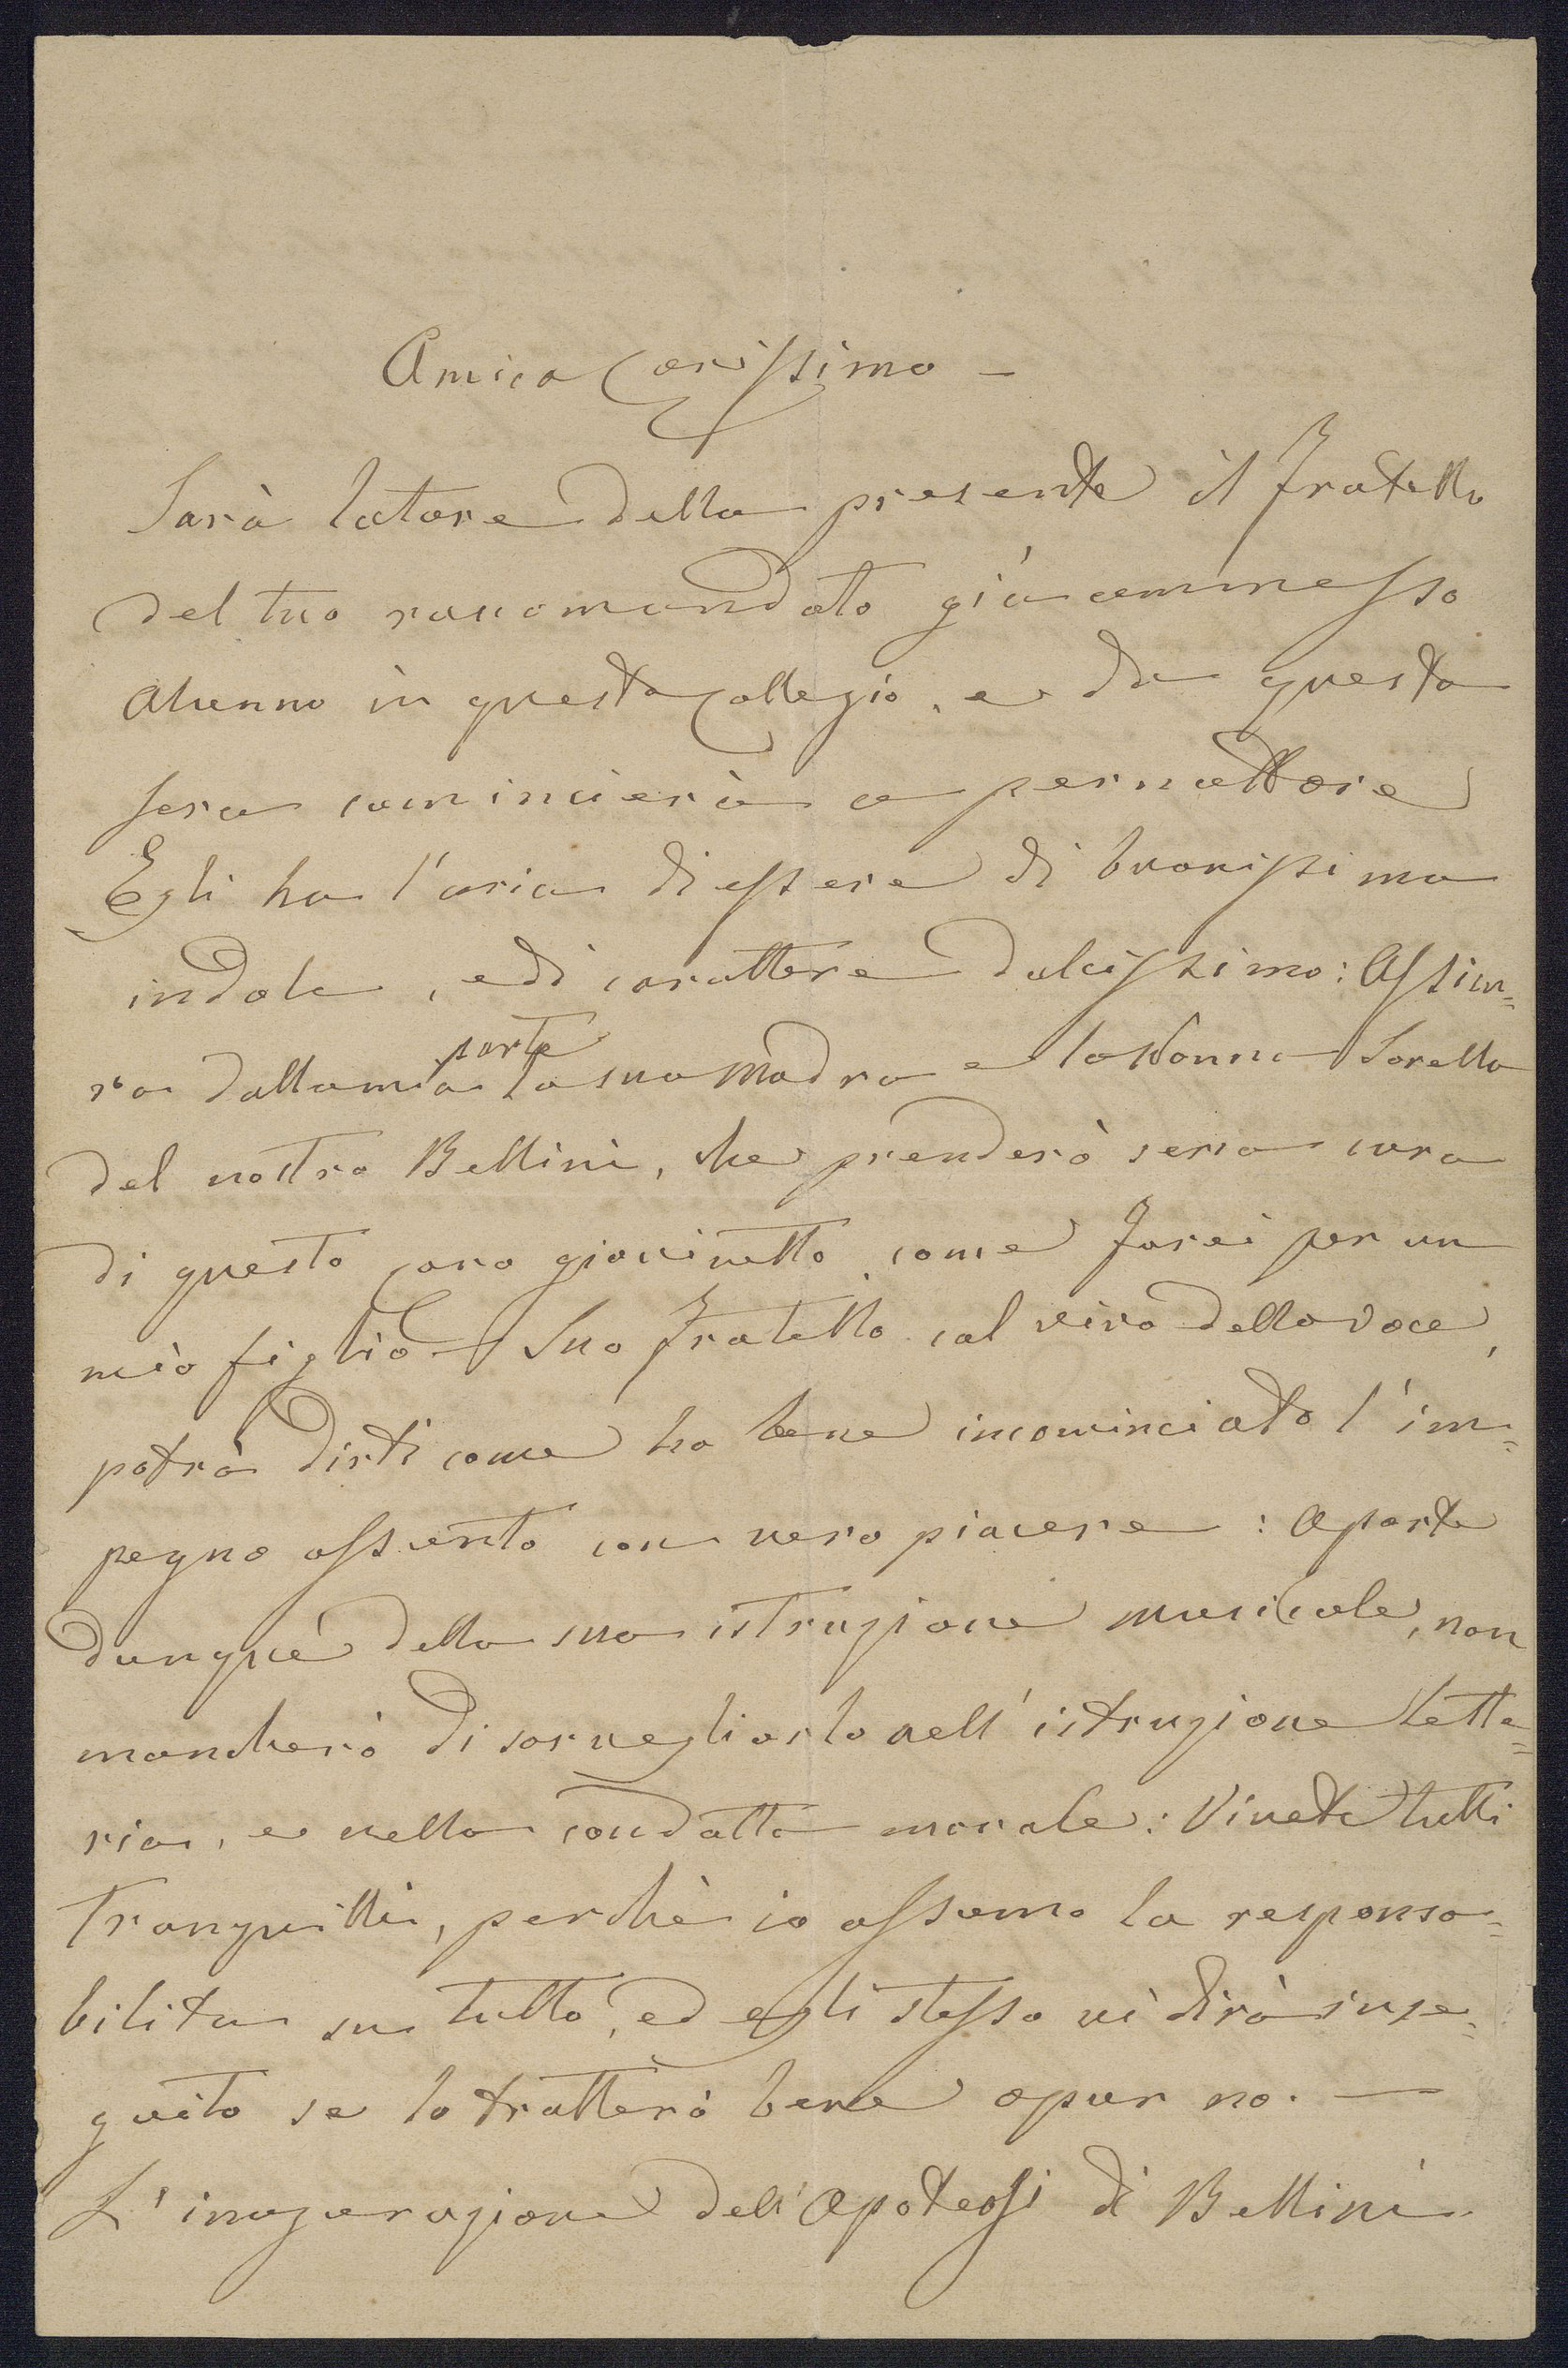 Amico Carissimo —
Sarà latore della presente il Fratello
del tuo raccomandato già ammesso
alunno in questo Collegio, e da questa
sera comincierà a pernottare
Egli ha l'aria di essere di buonissima
indole, e di carattere dolcissimo: Assicu=
ra dalla mia parte la sua Madre e la Nonna Sorella
del nostro Bellini, che prenderò seria cura
di questo caro giovinetto come farei per un
mio figlio — Suo Fratello col vivo della voce,
potrà dirti come ho bene incominciato l'im=
pegno assunto con vero piacere: a parte
dunque della sua istruzione musicale, non
mancherò di sorvegliarlo nell'istruzione lette=
ria, e nella condotta morale: Vivete tutti
tranquilli, perchè io assumo la responsa=
bilita su tutto, ed egli stesso vi dirà in se=
guito se lo tratterò bene opur no. —
L'inaugurazione dell'apoteosi di Bellini